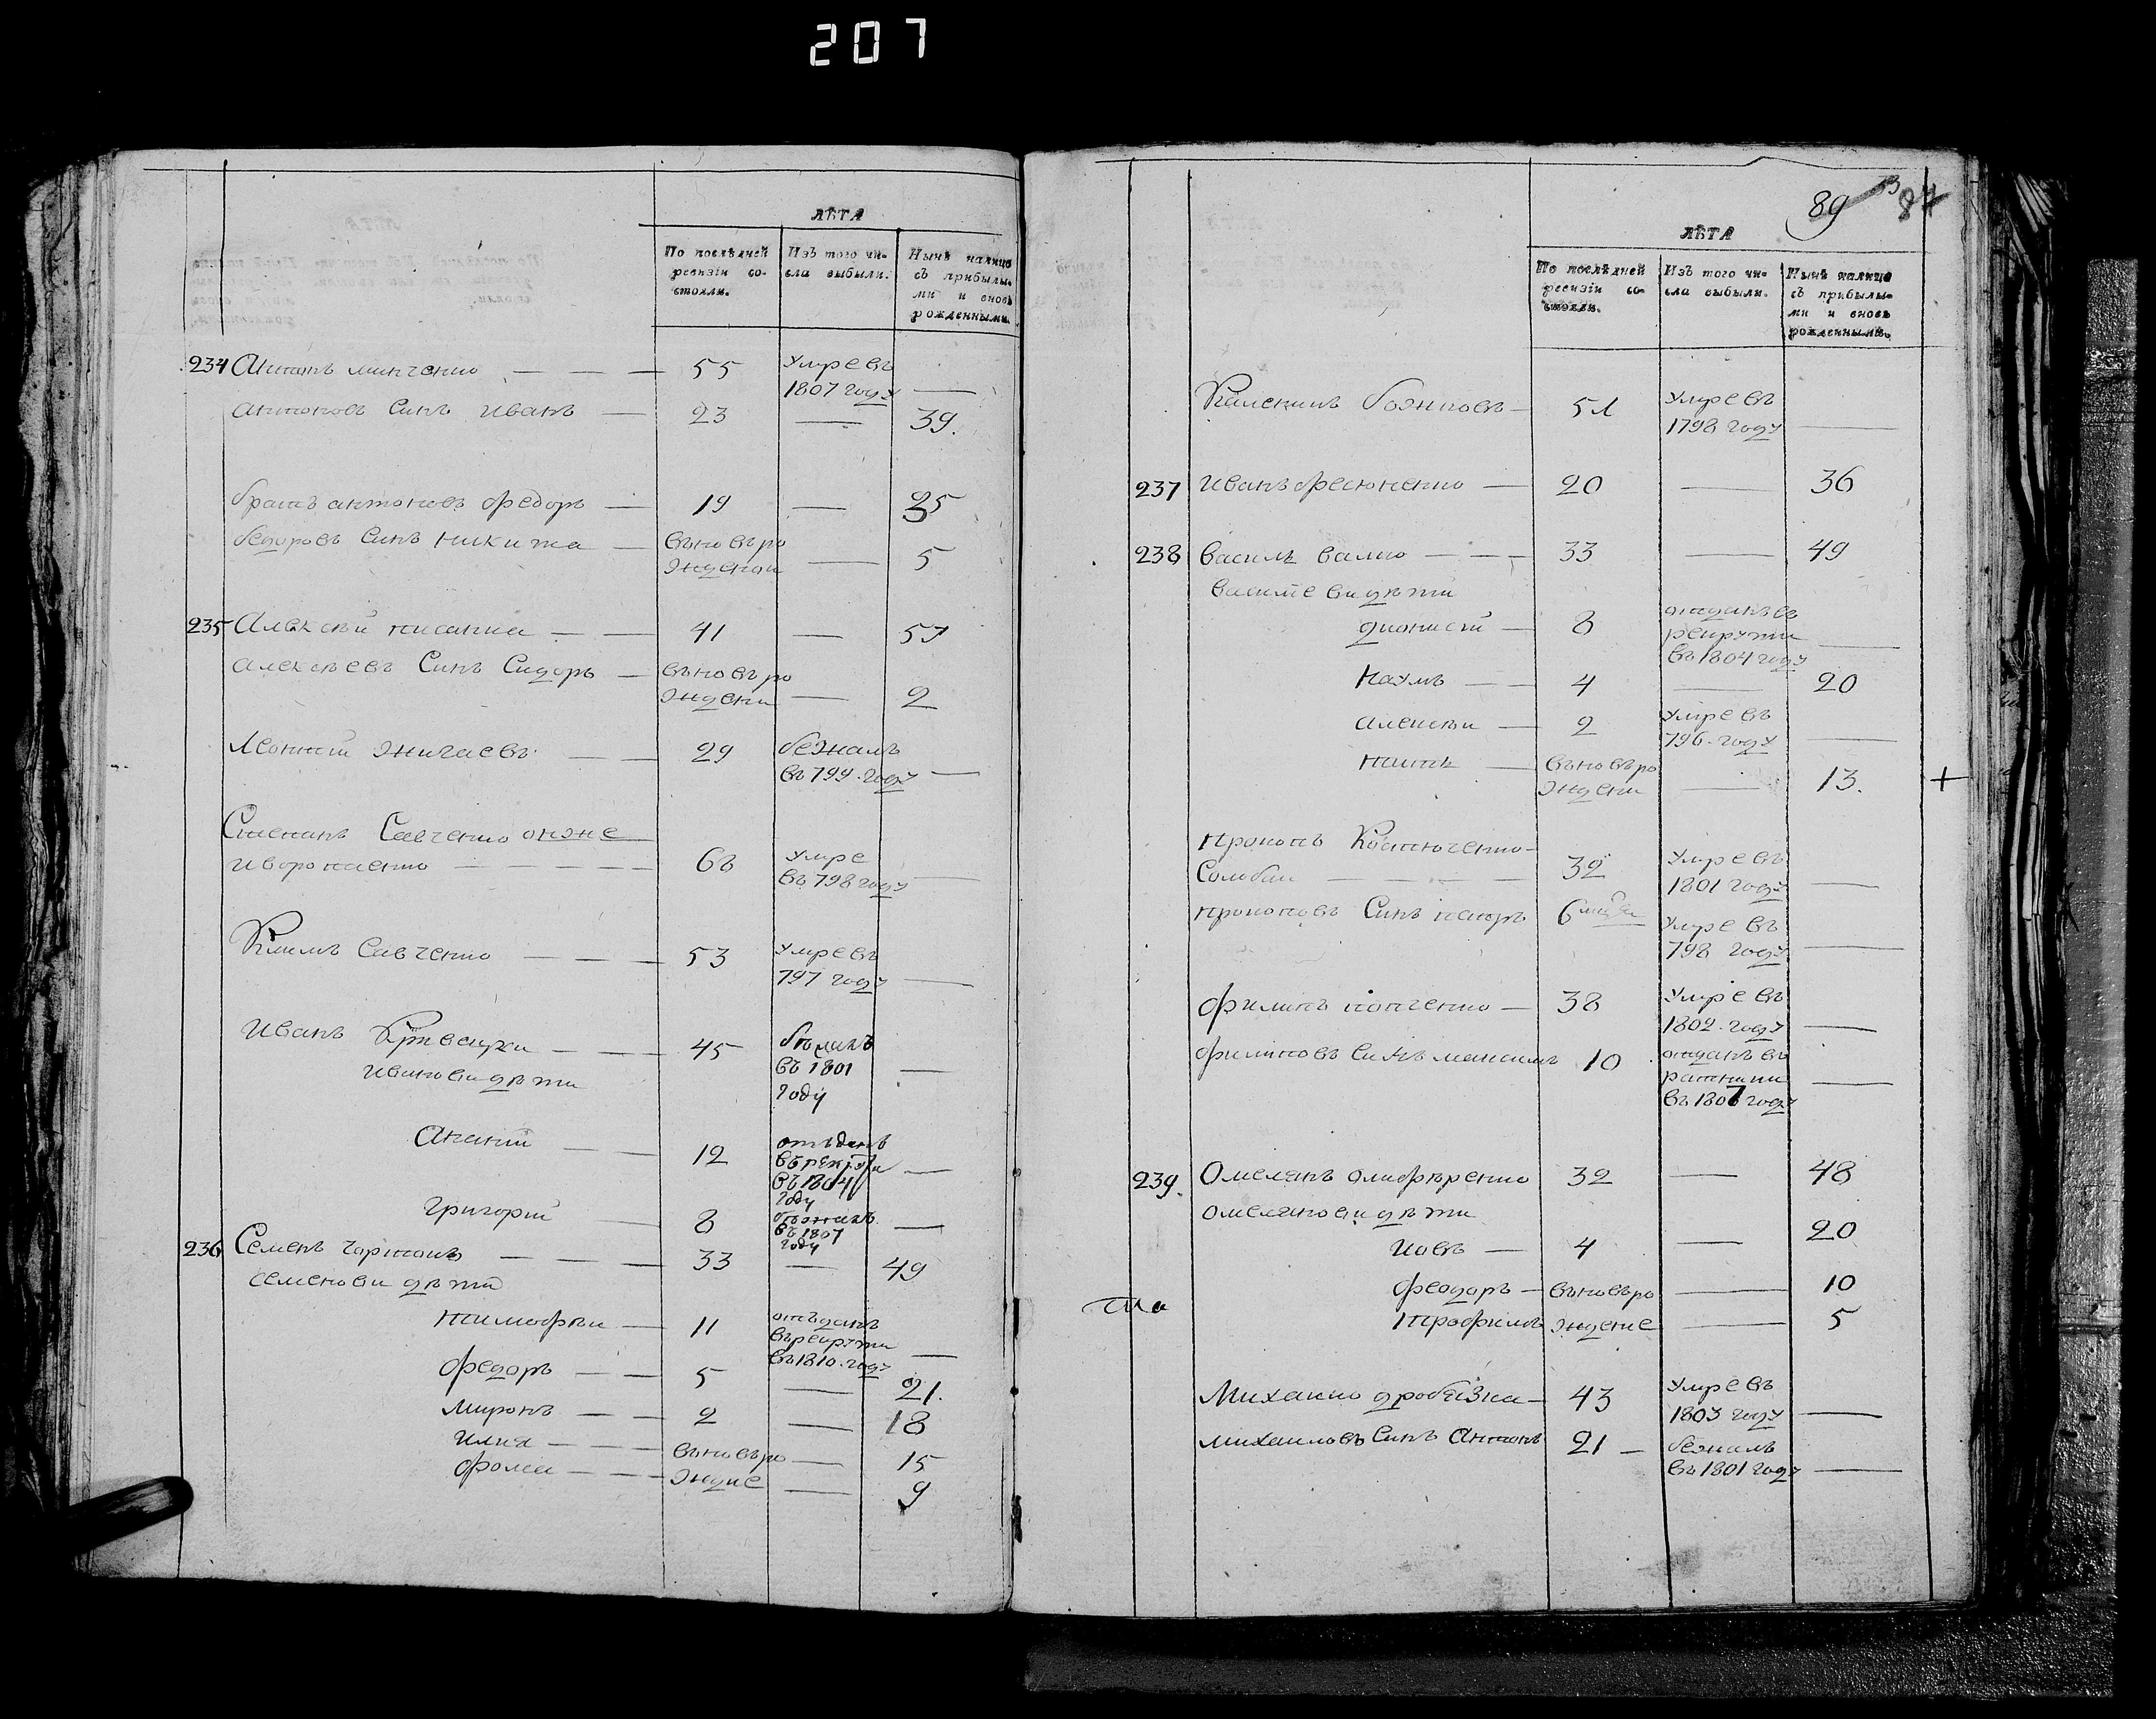 207
ЛѢТА
По послѣдней ревизіи состояли.
Изъ того числа выбыли.
Нынѣ налицо съ прибылыми и вновь рожденными.
234 Антонъ минченко — — — 55 Умре въ 1807 году —
антоновъ Синъ иванъ — 23 — 39.
братъ антоновъ Федоръ — 19 — 35
федоровъ Синъ никита — въновъро жденои — 5
235 Алексѣй писанка — — 41 — 57
алексѣевъ Синъ Сидоръ — вновъ ро ждени — 2
29 бежалъ въ 799. году —
Степанъ Савченко онже
68 умре въ 798 году —
Климъ Савченко — — — 53 Умре въ 797 году —
Иванъ — — — 45 въ 1801 году —
ивановидѣти
Ананий — — 12 отъданъ въ рекрути въ 1804 году —
Григорий — 8 въ 1807 году —
236 Семенъ — — — 33 — 49
семенови дѣти
тимофѣи — 11 отъданъ въ рекрути въ 1810. году —
Федоръ — — 5 — 21.
миронъ — — 2 — 18
илия — — — вновъ ро — 15
Фома — — — ждние — 9
89 87
ЛѢТА
По послѣдней ревизіи состояли.
Изъ того числа выбыли.
Нынѣ налицо съ прибылыми и вновь рожденными.
51 Умре въ 1798 году —
237 Иванъ — 20 — 36
238 василь — — — 33 — 49
василеви дѣти
дионисий — 8 отданъ въ рекрути въ 1804 году —
наумъ — — 4 — 20
алексѣи — 2 Умре въ 796. году —
— вновъ ро ждени — 13. +
прокопъ Костюченко
32 Умре въ 1801 году —
прокоповъ Синъ 6 Умре въ 798 году —
Филипъ — 38 Умре въ 1802. году —
филиповъ Синъ максимъ 10 отданъ въ ратники въ 1807 году —
239. Омелянъ олифѣренко 32 — 48
омелянови дѣти
иовъ — 4 — 20
феодоръ — вновъ ро — 10
трофимъ ждение — 5
Михаило дробязка — 43 Умре въ 1803 году —
михаиловъ Синъ Антонъ 21 — бежалъ въ 1801 году —